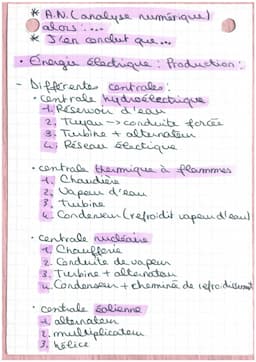 * A.N. (analyse numérique)
alors : ...
* J'en conclut que...
• Énergie électrique : Production :
- Différentes centrales :
• centrale hydroélectrique
1. Réservoir d'eau
2. Tuyau → conduite forcée
3. Turbine + alternateur
4. Réseau électrique
• centrale thermique à flammmes
1. Chaudière
2. Vapeur d'eau
3. turbine
4. Condenseur (refroidit vapeur d'eau)
• centrale nucléaire
1. Chaufferie
2. Conduite de vapeur
3. Turbine + alternateur
4. Condenseur + cheminée de refroidissement
• centrale éolienne
1. alternateur
2. multiplicateur
3. hélice